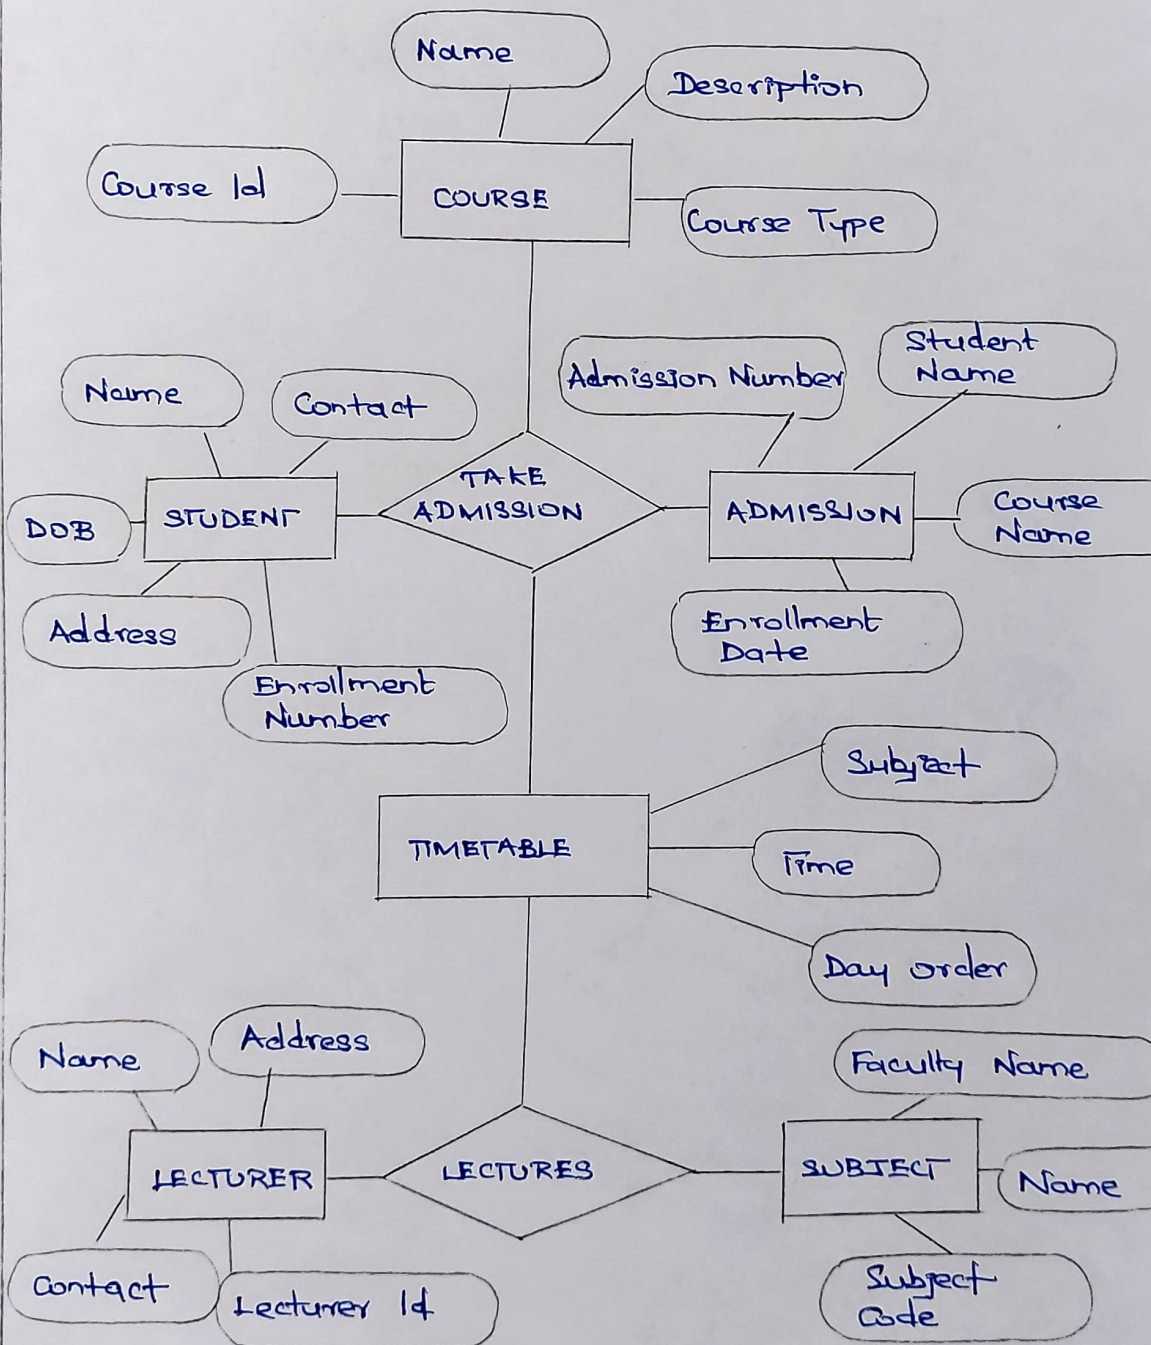 Name
Description
Course Id
COURSE
Course Type
Student
Name
Admission Number
Name
Contact
TAKE
ADMISSION
STUDENT
ADMISSION
Course
Name
DOB
Address
Enrollment
Date
Enrollment
Number
Subject
TIMETABLE
Time
Day order
Name
Address
Faculty Name
LECTURER
LECTURES
SUBJECT
Name
Contact
Lecturer Id
Subject
Code